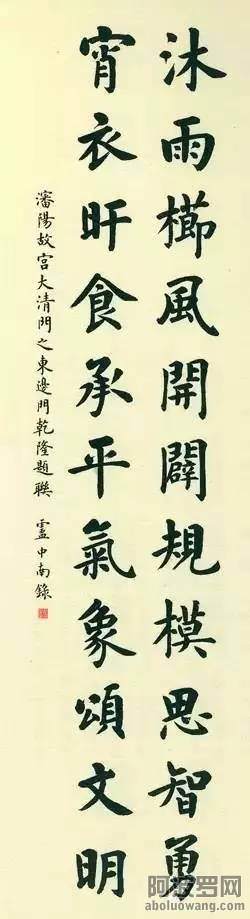 沐雨櫛風開闢規模思智勇
宵衣旰食承平氣象頌文明
瀋陽故宫大清門之東邊門乾隆題聯 盧中南錄
阿波罗网
aboluowang.com